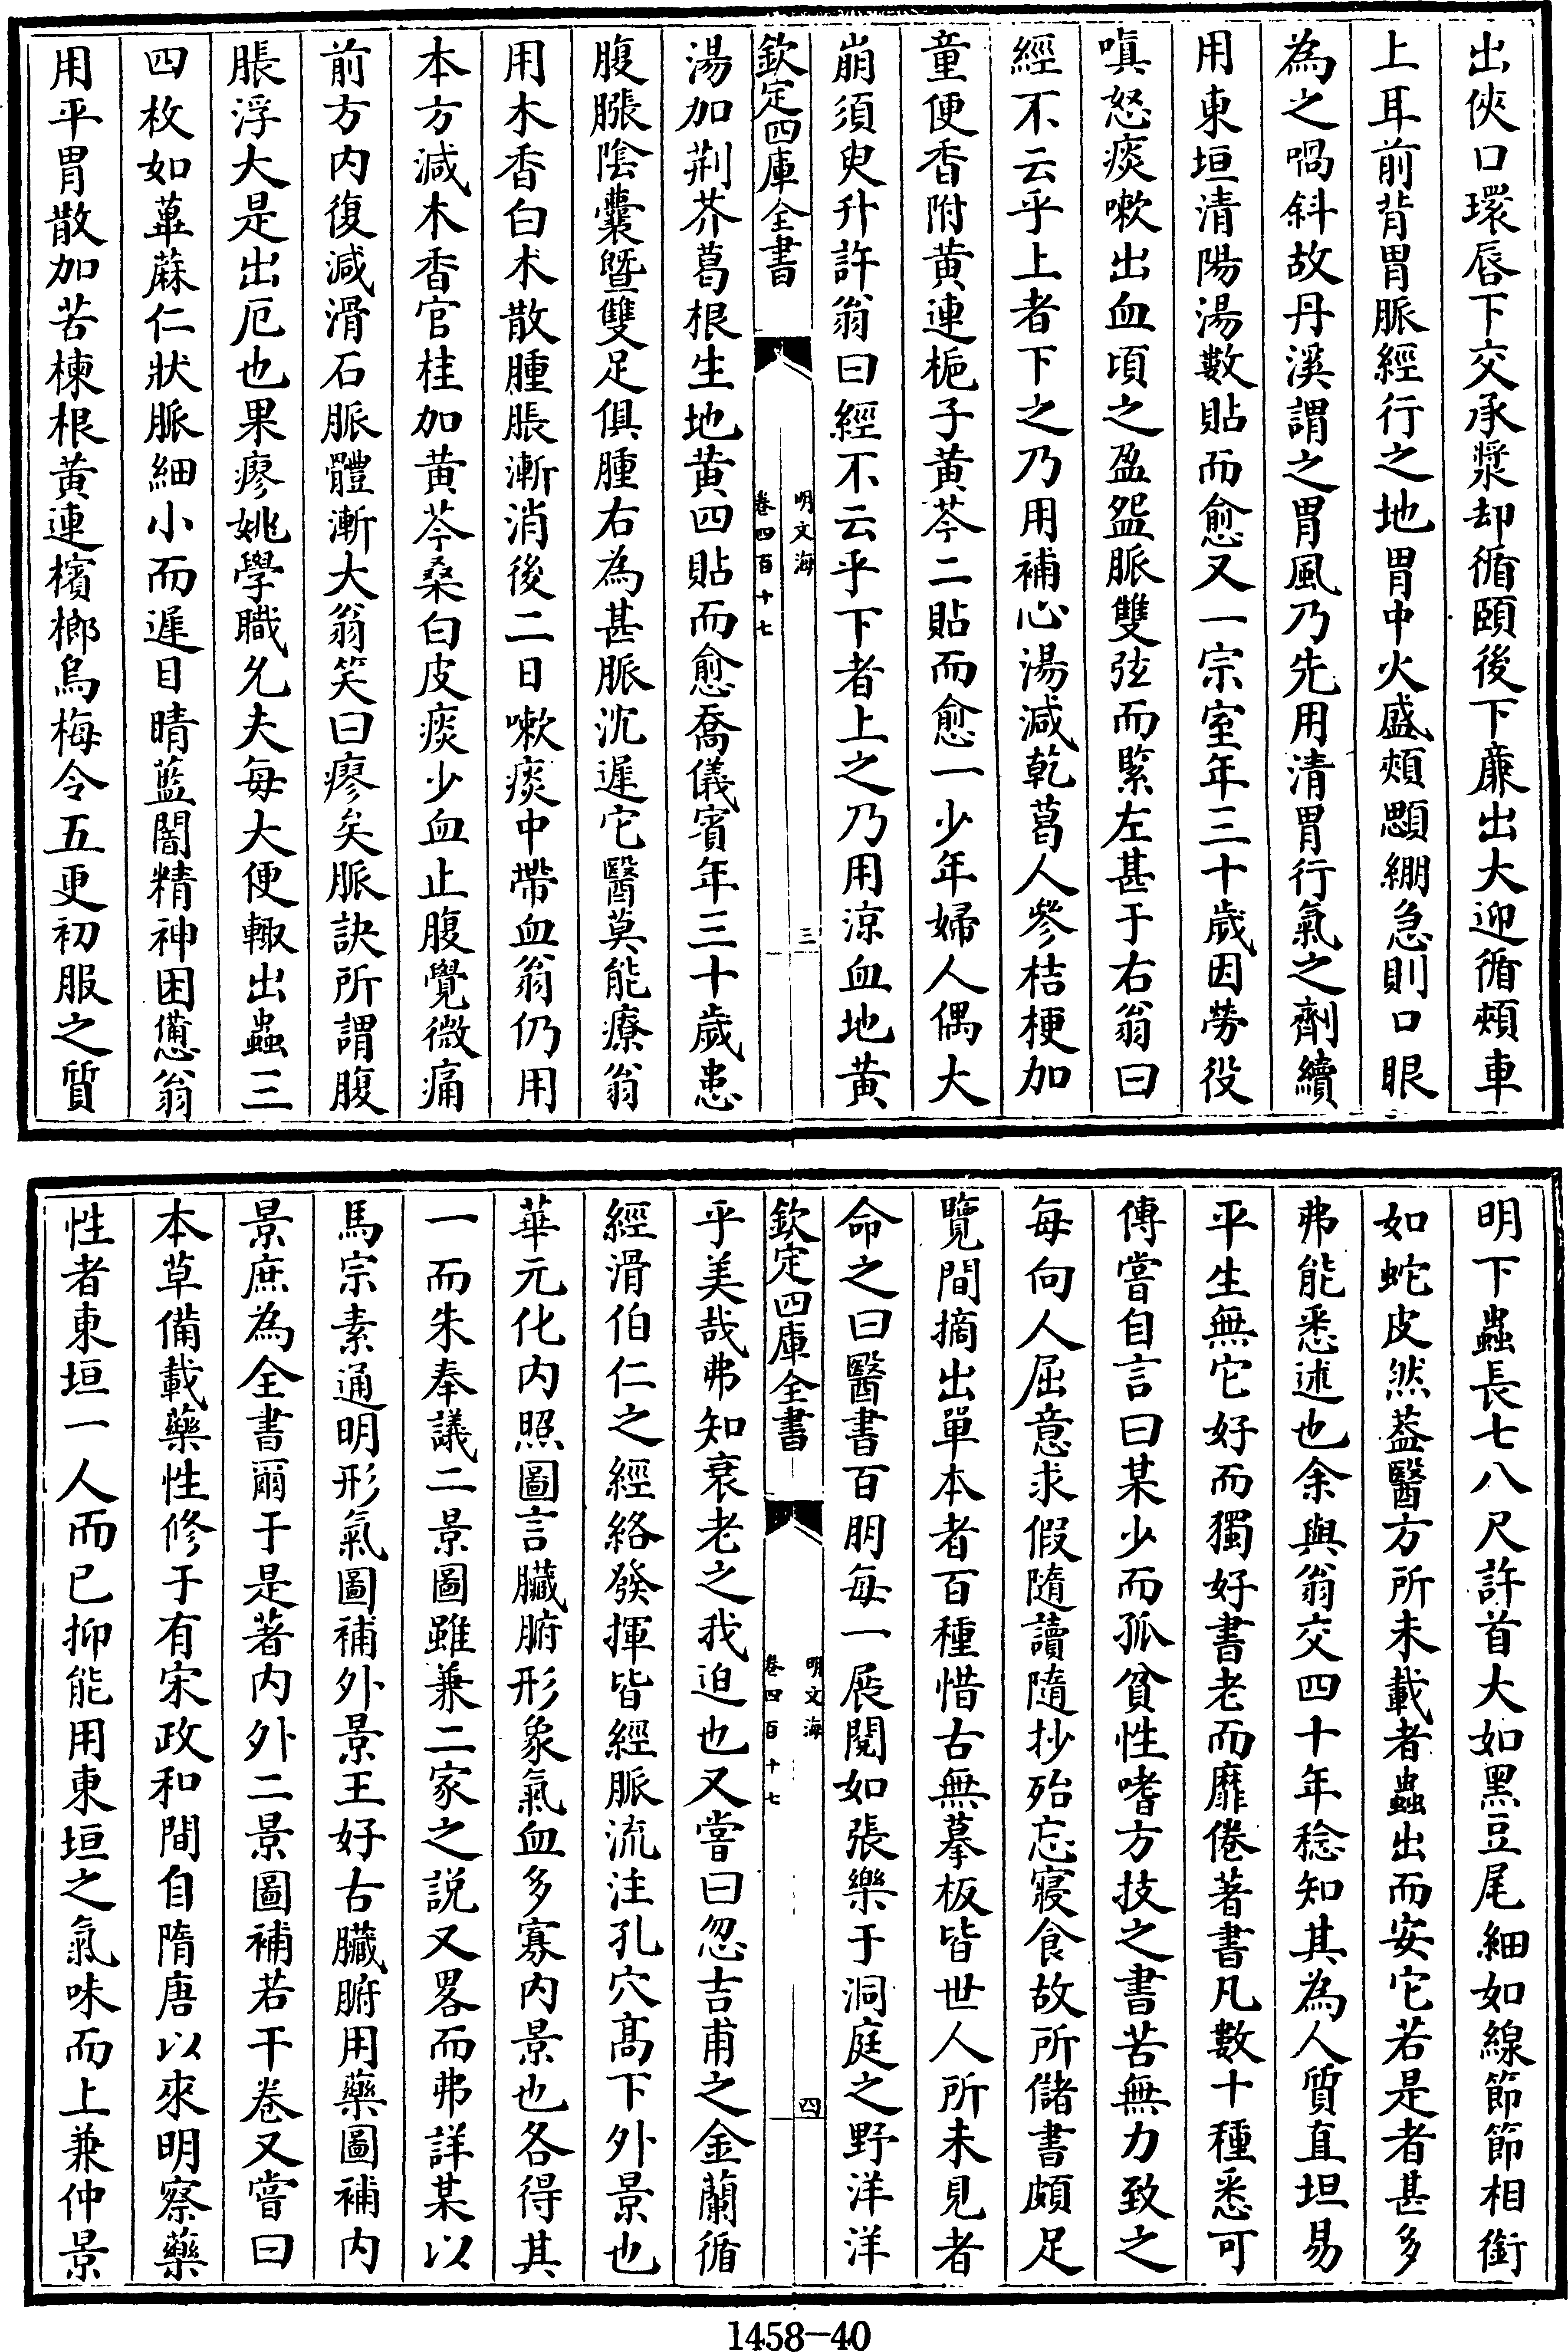 出俠口環唇下交承漿却循頤後下廉出大迎循頰車
上耳前背胃脈經行之地胃中火盛頰顋綳急則口眼
為之喎斜故丹溪謂之胃風乃先用清胃行氣之劑續
用東垣清陽湯數貼而愈又一宗室年三十歲因勞役
嗔怒痰嗽出血頃之盈盌脈雙弦而緊左甚于右翁曰
經不云乎上者下之乃用補心湯減乾葛人參桔梗加
童便香附黄連梔子黄芩二貼而愈一少年婦人偶大
崩須臾升許翁曰經不云乎下者上之乃用涼血地黄
欽定四庫全書
明文海
卷四百十七
三
湯加荆芥葛根生地黄四貼而愈喬儀賓年三十歲患
腹脹陰囊暨雙足俱腫右為甚脈沈遲它醫莫能療翁
用木香白术散腫脹漸消後二日嗽痰中帶血翁仍用
本方減木香官桂加黄芩桑白皮痰少血止腹覺微痛
前方内復減滑石脈體漸大翁笑曰瘳矣脈訣所謂腹
脹浮大是出厄也果瘳姚學職允夫每大便輙出蟲三
四枚如萆蔴仁狀脈細小而遲目睛藍闇精神困憊翁
用平胃散加苦楝根黄連檳榔烏梅令五更初服之質
明下蟲長七八尺許首大如黑豆尾細如線節節相銜
如蛇皮然葢醫方所未載者蟲出而安它若是者甚多
弗能悉述也余與翁交四十年稔知其為人質直坦易
平生無它好而獨好書老而靡倦著書凡數十種悉可
傳嘗自言曰某少而孤貧性嗜方技之書苦無力致之
每向人屈意求假隨讀隨抄殆忘寢食故所儲書頗足
覽間摘出單本者百種惜古無摹板皆世人所未見者
命之曰醫書百朋每一展閱如張樂于洞庭之野洋洋
欽定四庫全書
明文海
卷四百十七
四
乎美哉弗知衰老之我迫也又嘗曰忽吉甫之金蘭循
經滑伯仁之經絡發揮皆經脈流注孔穴髙下外景也
華元化内照圖言臟腑形象氣血多寡内景也各得其
一而朱奉議二景圖雖兼二家之説又畧而弗詳某以
馬宗素通明形氣圖補外景王好古臟腑用藥圖補内
景庶為全書爾于是著内外二景圖補若干卷又嘗曰
本草備載藥性修于有宋政和間自隋唐以來明察藥
性者東垣一人而已抑能用東垣之氣味而上兼仲景
1458-40